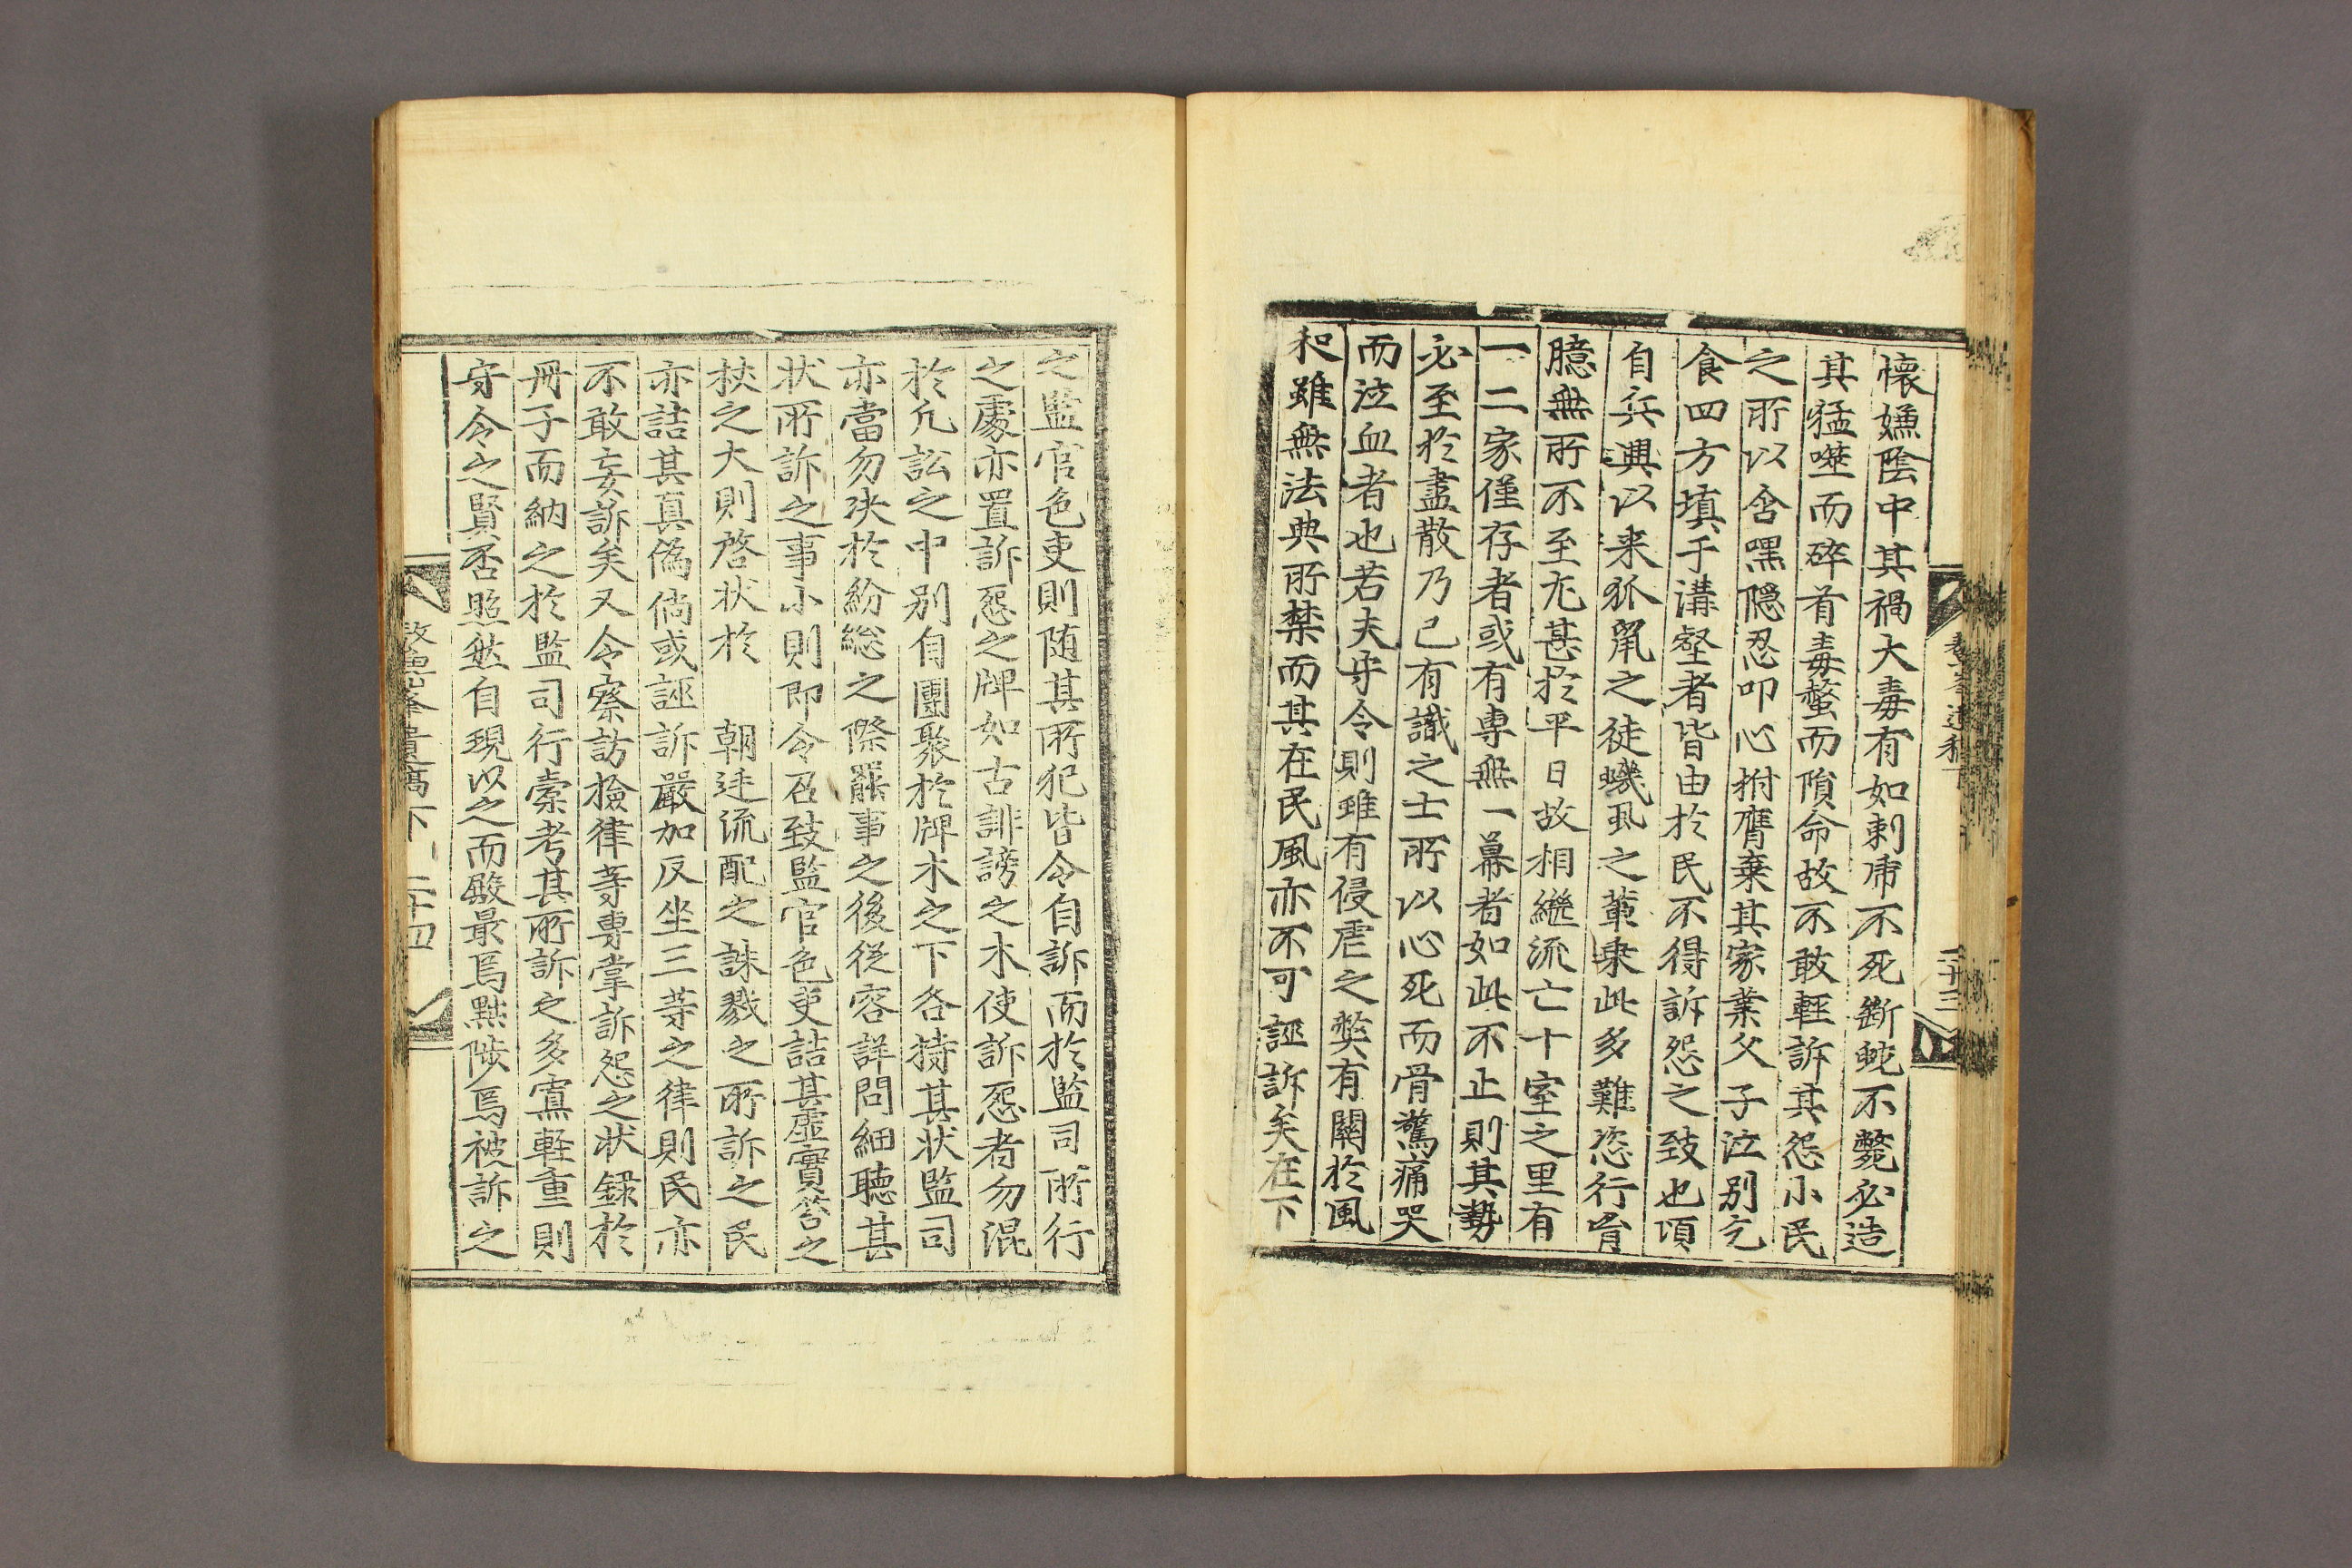 懷嫌陰中其禍大毒有如刺虎不死斷蛇不斃必造
其猛噬而碎首毒螫而隕命故不敢輕訴其怨小民
之所以含嘿隱忍叩心拊膺棄其家業父子泣別乞
食四方填乎溝壑者皆由於民不得訴怨之致也項
自兵興以来狐鼠之徒蟣虱之輩乗此多難恣行胷
臆無所不至尤甚於平日故相繼流亡十室之里有
一二家僅存者或有專無一幕者如此不止則其勢
必至於盡散乃已有識之士所以心死而骨驚痛哭
而泣血者也若夫守令則雖有侵虐之獘有關於風
和雖無法典所禁而其在民風亦不可誣訴矣在下
二十三
之監官色吏則随其所犯皆令自訴而於監司所行
之處亦置訴怨之牌如古誹謗之木使訴怨者勿混
於凡訟之中別自團聚於牌木之下各持其状監司
亦當勿決於紛総之際罷事之後從容詳問細聽其
状所訴之事小則即令召致監官色吏詰其虛實笞之
杖之大則啓状於 朝廷流配之誅戮之所訴之民
亦詰其真偽倘或誣訴嚴加反坐三等之律則民亦
不敢妄訴矣又令察訪檢律等專掌訴怨之状録於
冊子而納之於監司行素考其所訴之多寡軽重則
守令之賢否照然自現以之而殿最焉黜陟焉被訴之
下 二十四